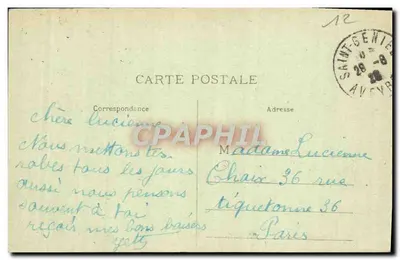 12
SAINT-GENIE
28 -8
28
AVEYR
CARTE POSTALE
Correspondance
Adresse
chère lucienne
Nous mettons tes
robes tous les jours
aussi nous pensons
souvent à toi
reçois mes bons baisers
Madame Lucienne
Choix 36 rue
tiquetonne 36
Paris